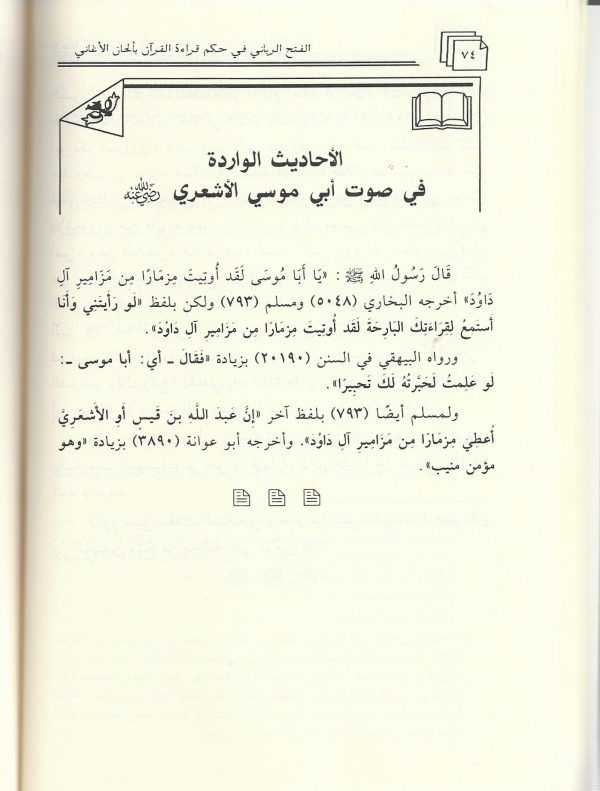 ٧٤
الفتح الرباني في حكم قراءة القرآن بألحان الأغاني
الأحاديث الواردة
في صوت أبي موسي الأشعري رضي الله عنه
قَالَ رَسُولُ اللهِ ﷺ: «يَا أَبَا مُوسَى لَقَد أُوتِيتَ مِزمَارًا مِن مَزَامِيرِ آلِ
دَاوُدَ» أخرجه البخاري (٥٠٤٨) ومسلم (٧٩٣) ولكن بلفظ «لَو رَأَيتَنِي وَأَنَا
أَستَمعُ لِقِرَاءَتِكَ البَارِحَةَ لَقَد أُوتِيتَ مِزمَارًا مِن مَزَامِيرِ آلِ دَاوُدَ».
ورواه البيهقي في السنن (٢٠١٩٠) بزيادة «فَقَالَ ـ أي: أبا موسى ـ:
لَو عَلِمتُ لَحَبَّرتُهُ لَكَ تَحبِيرًا».
ولمسلم أيضًا (٧٩٣) بلفظ آخر «إنَّ عَبدَ اللَّهِ بنَ قَيسٍ أَوِ الأَشعَرِيَّ
أُعطِيَ مِزمَارًا مِن مَزَامِيرِ آلِ دَاوُدَ». وأخرجه أبو عوانة (٣٨٩٠) بزيادة «وهو
مؤمن منيب».